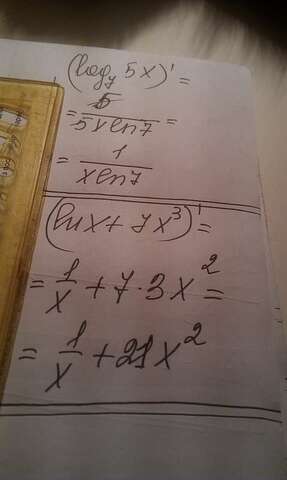 (log₇ 5x)' =
= 5/(5x ln7) =
= 1/(x ln7)
(lnx + 7x³)' =
= 1/x + 7·3x² =
= 1/x + 21x²